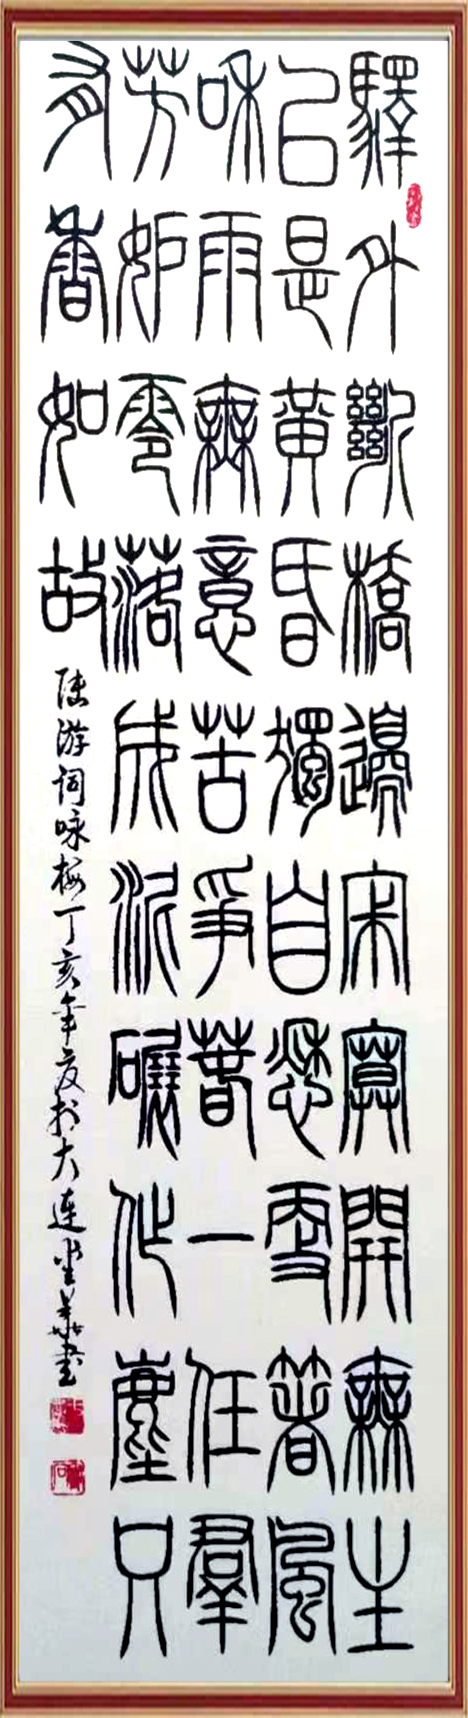 驛外斷橋邊寂寞開無主
已是黃昏獨自愁更著風
和雨無意苦爭春一任羣
芳妒零落成泥碾作塵只
有香如故
陸游詞咏梅丁亥年夏於大連書